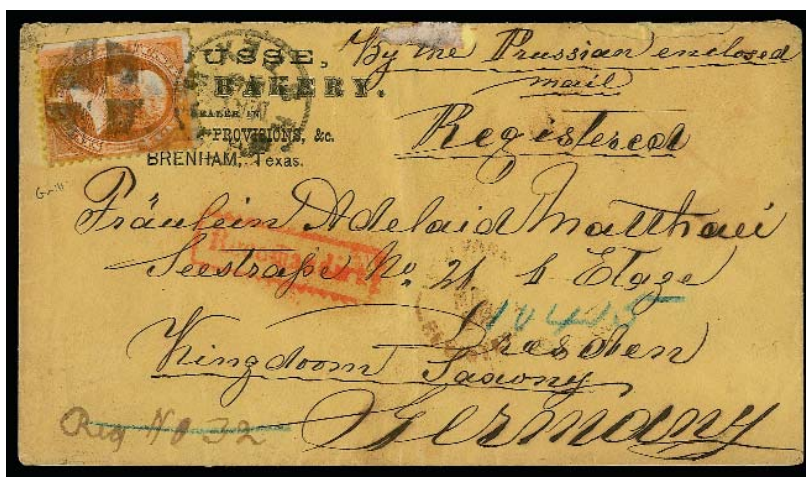 USSE,
BAKERY.
DEALER IN
PROVISIONS, &c.
BRENHAM, Texas.
By the Prussian enclosed
mail
Registered
Grill
Fräulein Adelaid Matthaei
Seestraße No. 21 Etage
10415
Dresden
Kingdoom Saxony
Germany
Reg No 32